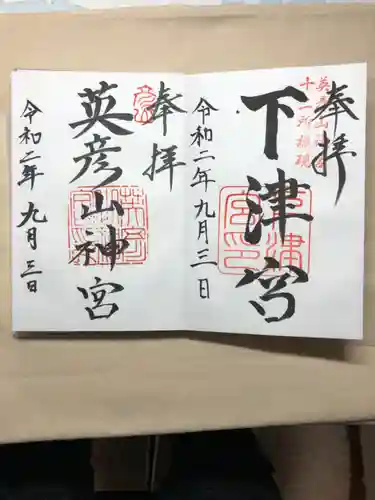 奉拝
下津宮
令和二年九月三日
奉拝
英彦山神宮
令和二年九月三日